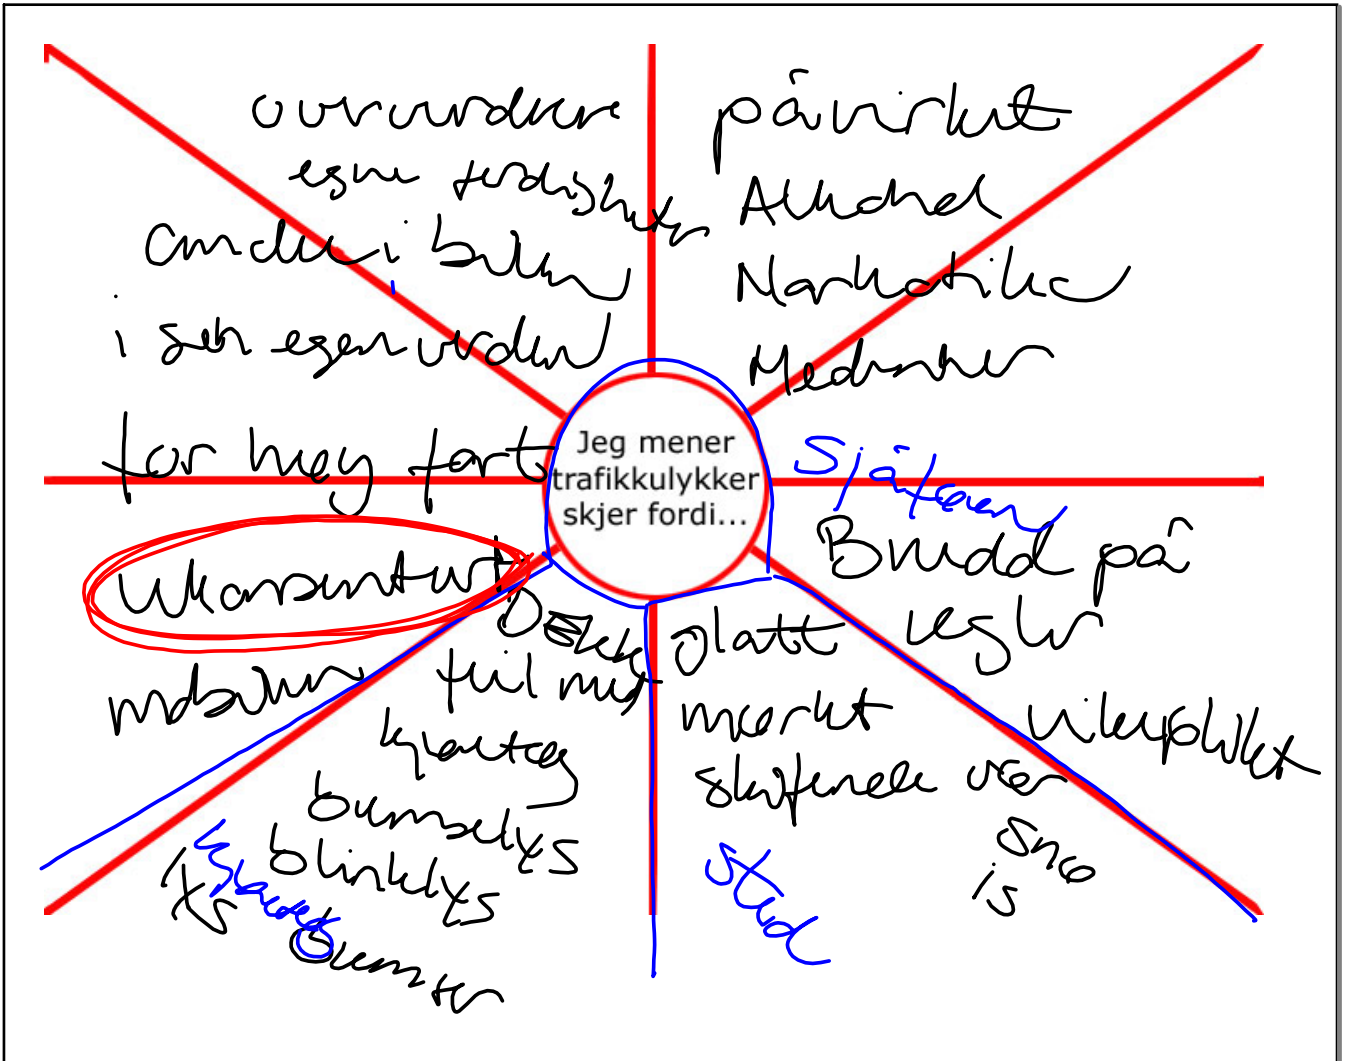 overvurdere
egne ferdigheter
andre i bilen
i sin egen verden
for høy fart
ukonsentrert
mobilen
påvirket
Alkohol
Narkotika
Medisiner
Jeg mener
trafikkulykker
skjer fordi...
Sjåføren
Brudd på
regler
vikeplikt
Dekk
feil med
kjøretøy
bremselys
blinklys
lys
bremser
glatt
mørkt
skiftende vær
snø
is
sted